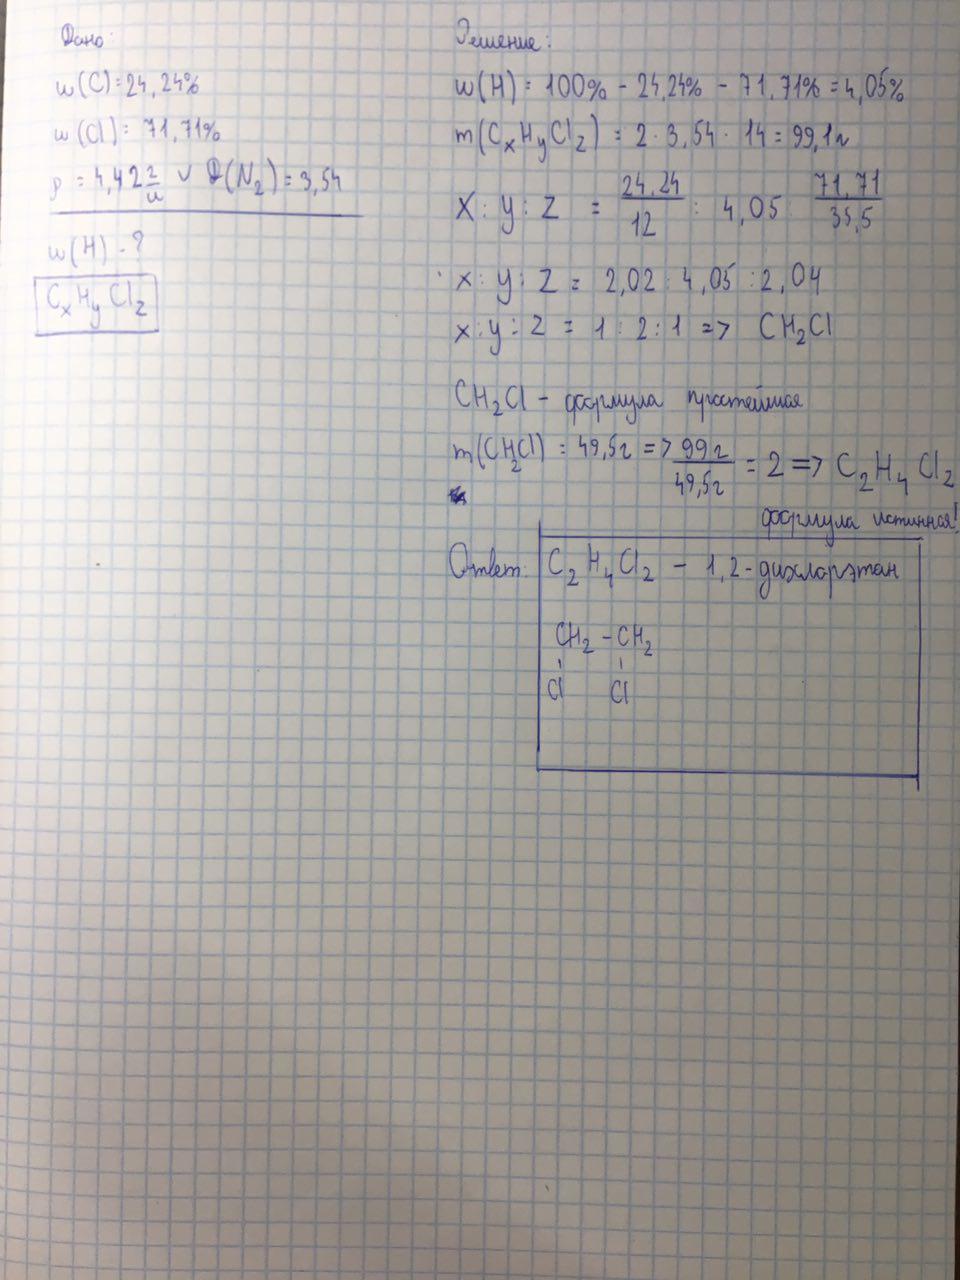 Дано:
w(C)=24,24%
w(Cl)= 71,71%
ρ = 4,42 г/л v D(N₂)=3,54
w(H) - ?
CₓHᵧCl_z
Решение:
w(H) = 100% - 24,24% - 71,71% = 4,05%
m(CₓHᵧCl_z) = 2 · 3,54 · 14 = 99,1г
X : y : Z = 24,24/12 : 4,05 : 71,71/35,5
x : y : z = 2,02 : 4,05 : 2,04
x : y : z = 1 : 2 : 1 => CH₂Cl
CH₂Cl - формула простейшая
m(CH₂Cl) = 49,5г => 99г/49,5г = 2 => C₂H₄Cl₂
формула истинная!
Ответ: C₂H₄Cl₂ - 1,2-дихлорэтан
CH₂ - CH₂
Cl Cl